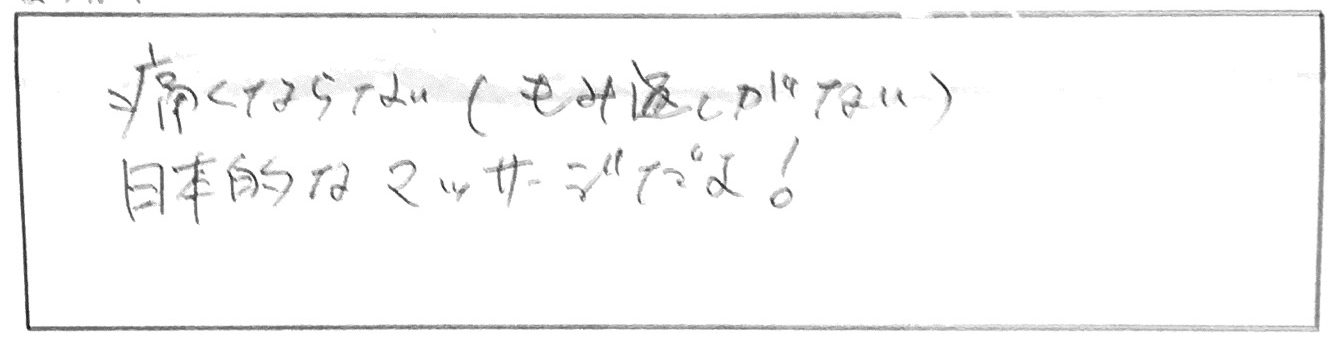 痛くならない(もみ返しがない)
日本的なマッサージだよ!